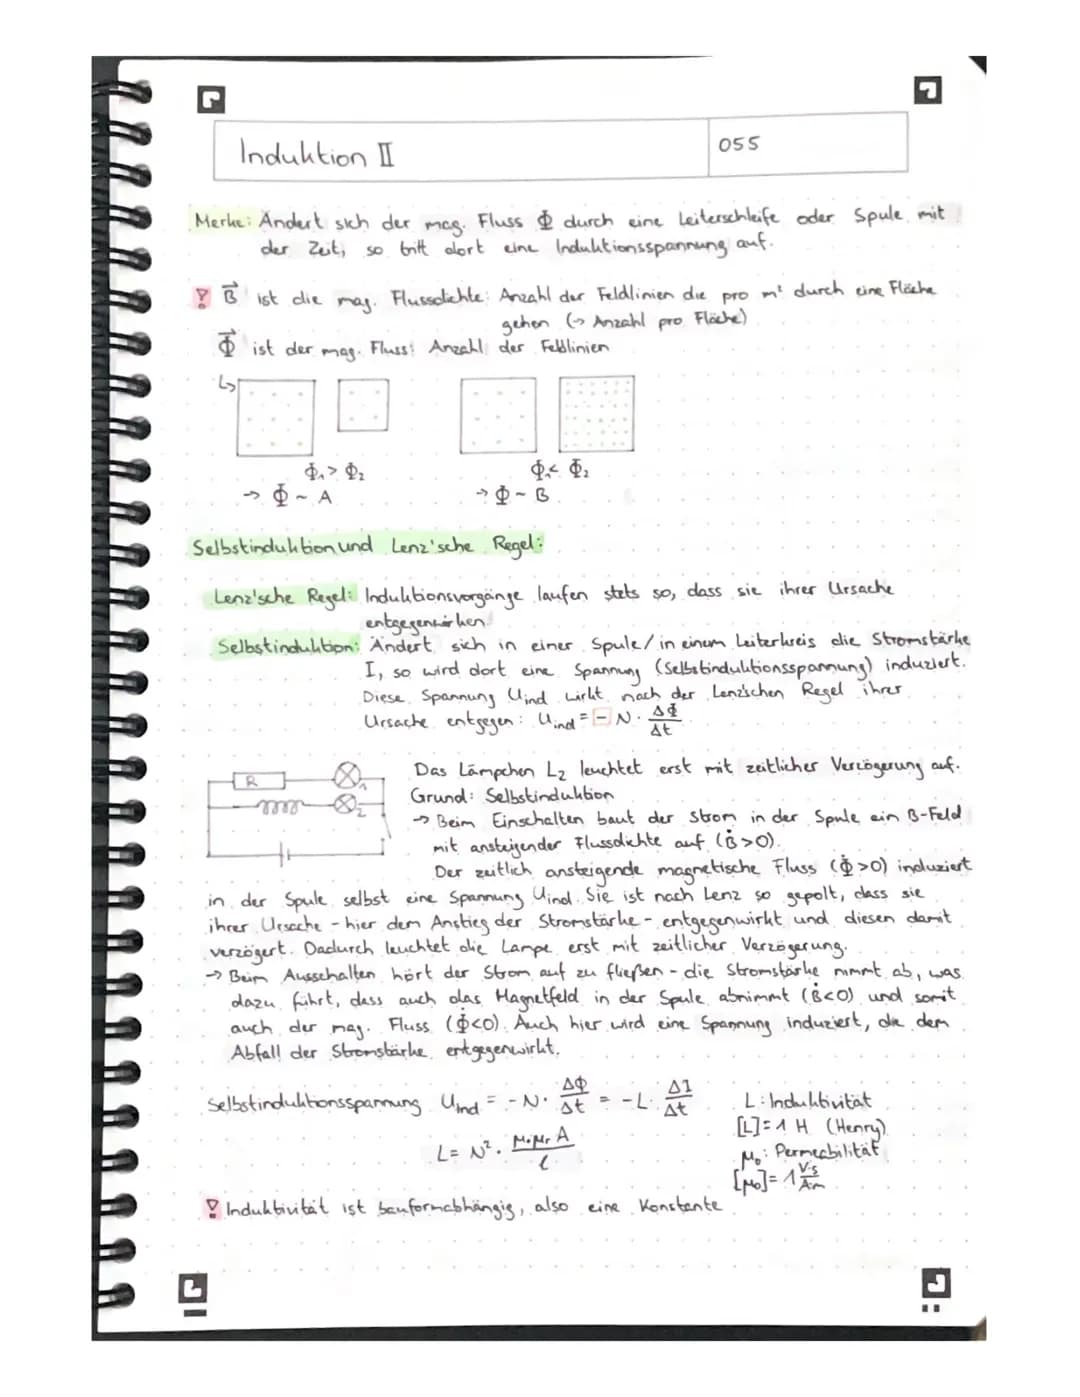 Induktion II
055
Merke: Ändert sich der mag. Fluss Φ durch eine Leiterschleife oder Spule mit
der Zeit, so tritt dort eine Induktionsspannung auf.
! B⃗ ist die mag. Flussdichte: Anzahl der Feldlinien die pro m² durch eine Fläche
gehen (→ Anzahl pro Fläche)
Φ⃗ ist der mag. Fluss: Anzahl der Feldlinien
Φ₁ > Φ₂
Φ₁ < Φ₂
→ Φ ~ A
→ Φ ~ B
Selbstinduktion und Lenz'sche Regel:
Lenz'sche Regel: Induktionsvorgänge laufen stets so, dass sie ihrer Ursache
entgegenwirken.
Selbstinduktion: Ändert sich in einer Spule/in einem Leiterkreis die Stromstärke
I, so wird dort eine Spannung (Selbstinduktionsspannung) induziert.
Diese Spannung Uind wirkt nach der Lenz'schen Regel ihrer
Ursache entgegen: Uind = - N · ΔΦ/Δt
R
1
2
Das Lämpchen L₂ leuchtet erst mit zeitlicher Verzögerung auf.
Grund: Selbstinduktion
→ Beim Einschalten baut der Strom in der Spule ein B-Feld
mit ansteigender Flussdichte auf (Ḃ>0).
Der zeitlich ansteigende magnetische Fluss (Φ̇>0) induziert
in der Spule selbst eine Spannung Uind. Sie ist nach Lenz so gepolt, dass sie
ihrer Ursache - hier dem Anstieg der Stromstärke - entgegenwirkt und diesen damit
verzögert. Dadurch leuchtet die Lampe erst mit zeitlicher Verzögerung.
→ Beim Ausschalten hört der Strom auf zu fließen - die Stromstärke nimmt ab, was
dazu führt, dass auch das Magnetfeld in der Spule abnimmt (Ḃ<0) und somit
auch der mag. Fluss (Φ̇<0). Auch hier wird eine Spannung induziert, die dem
Abfall der Stromstärke entgegenwirkt.
Selbstinduktionsspannung Uind = - N · ΔΦ/Δt = - L · ΔI/Δt
L: Induktivität
[L]= 1 H (Henry)
L = N² · μ₀μr A/l
μ₀: Permeabilität
[μ₀]= 1 Vs/Am
! Induktivität ist bauformabhängig, also eine Konstante